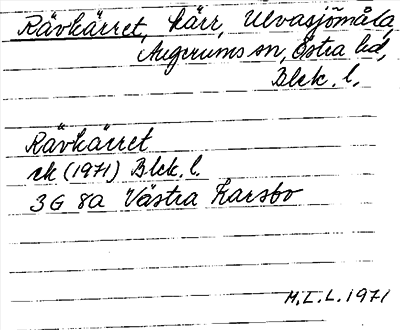 Rävkärret, kärr, Ulvasjömåla,
Augerums sn, Östra hd,
Blek. l.
Rävkärret
ek (1971) Blek. l.
3G 8a Västra Karsbo
H.L.L. 1971